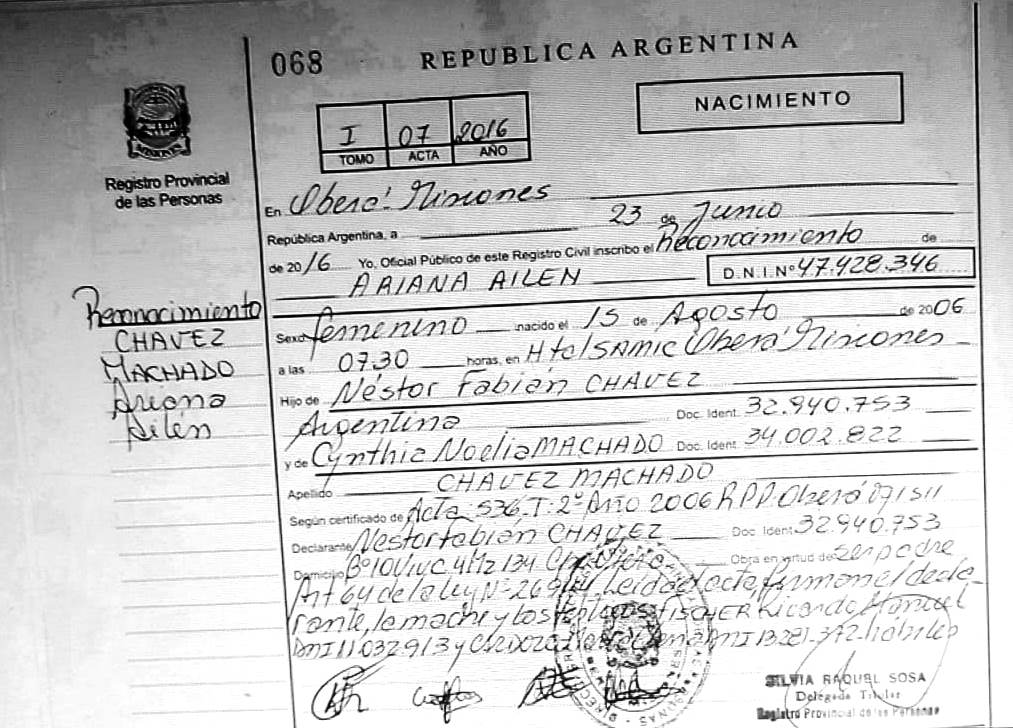 068 REPUBLICA ARGENTINA
NACIMIENTO
I 07 2016
TOMO ACTA AÑO
MISIONES
Registro Provincial
de las Personas
En Oberá Misiones
República Argentina, a 23 de Junio
de 2016 Yo, Oficial Público de este Registro Civil inscribo el Reconocimiento de
ARIANA AILEN D.N.I.Nº 47.428.346
Reconocimiento
CHAVEZ
MACHADO
Ariana
Ailén
Sexo femenino nacido el 15 de Agosto de 2006
a las 07.30 horas, en Htal SAMIC Oberá Misiones
Hijo de Néstor Fabián CHAVEZ
Argentina Doc. Ident. 32.940.753
y de Cynthia Noelia MACHADO Doc. Ident. 34.002.822
Apellido CHAVEZ MACHADO
Según certificado de Acta: 536 T: 2º Año 2006 R.P.P. Oberá
Declarante Nestor Fabián CHAVEZ Doc Ident. 32.940.753
Domicilio Bº 10 Viv C 4 Mz 134 Obra en virtud de ser padre
Art 64 de la Ley Nº 26 Leida el acta, firman el decla-
rante, la madre y los testigos FISCHER Ricardo Manuel
DNI 11032913 y DNI 13281.372 hábiles
SILVIA RAQUEL SOSA
Delegada Titular
Registro Provincial de las Personas